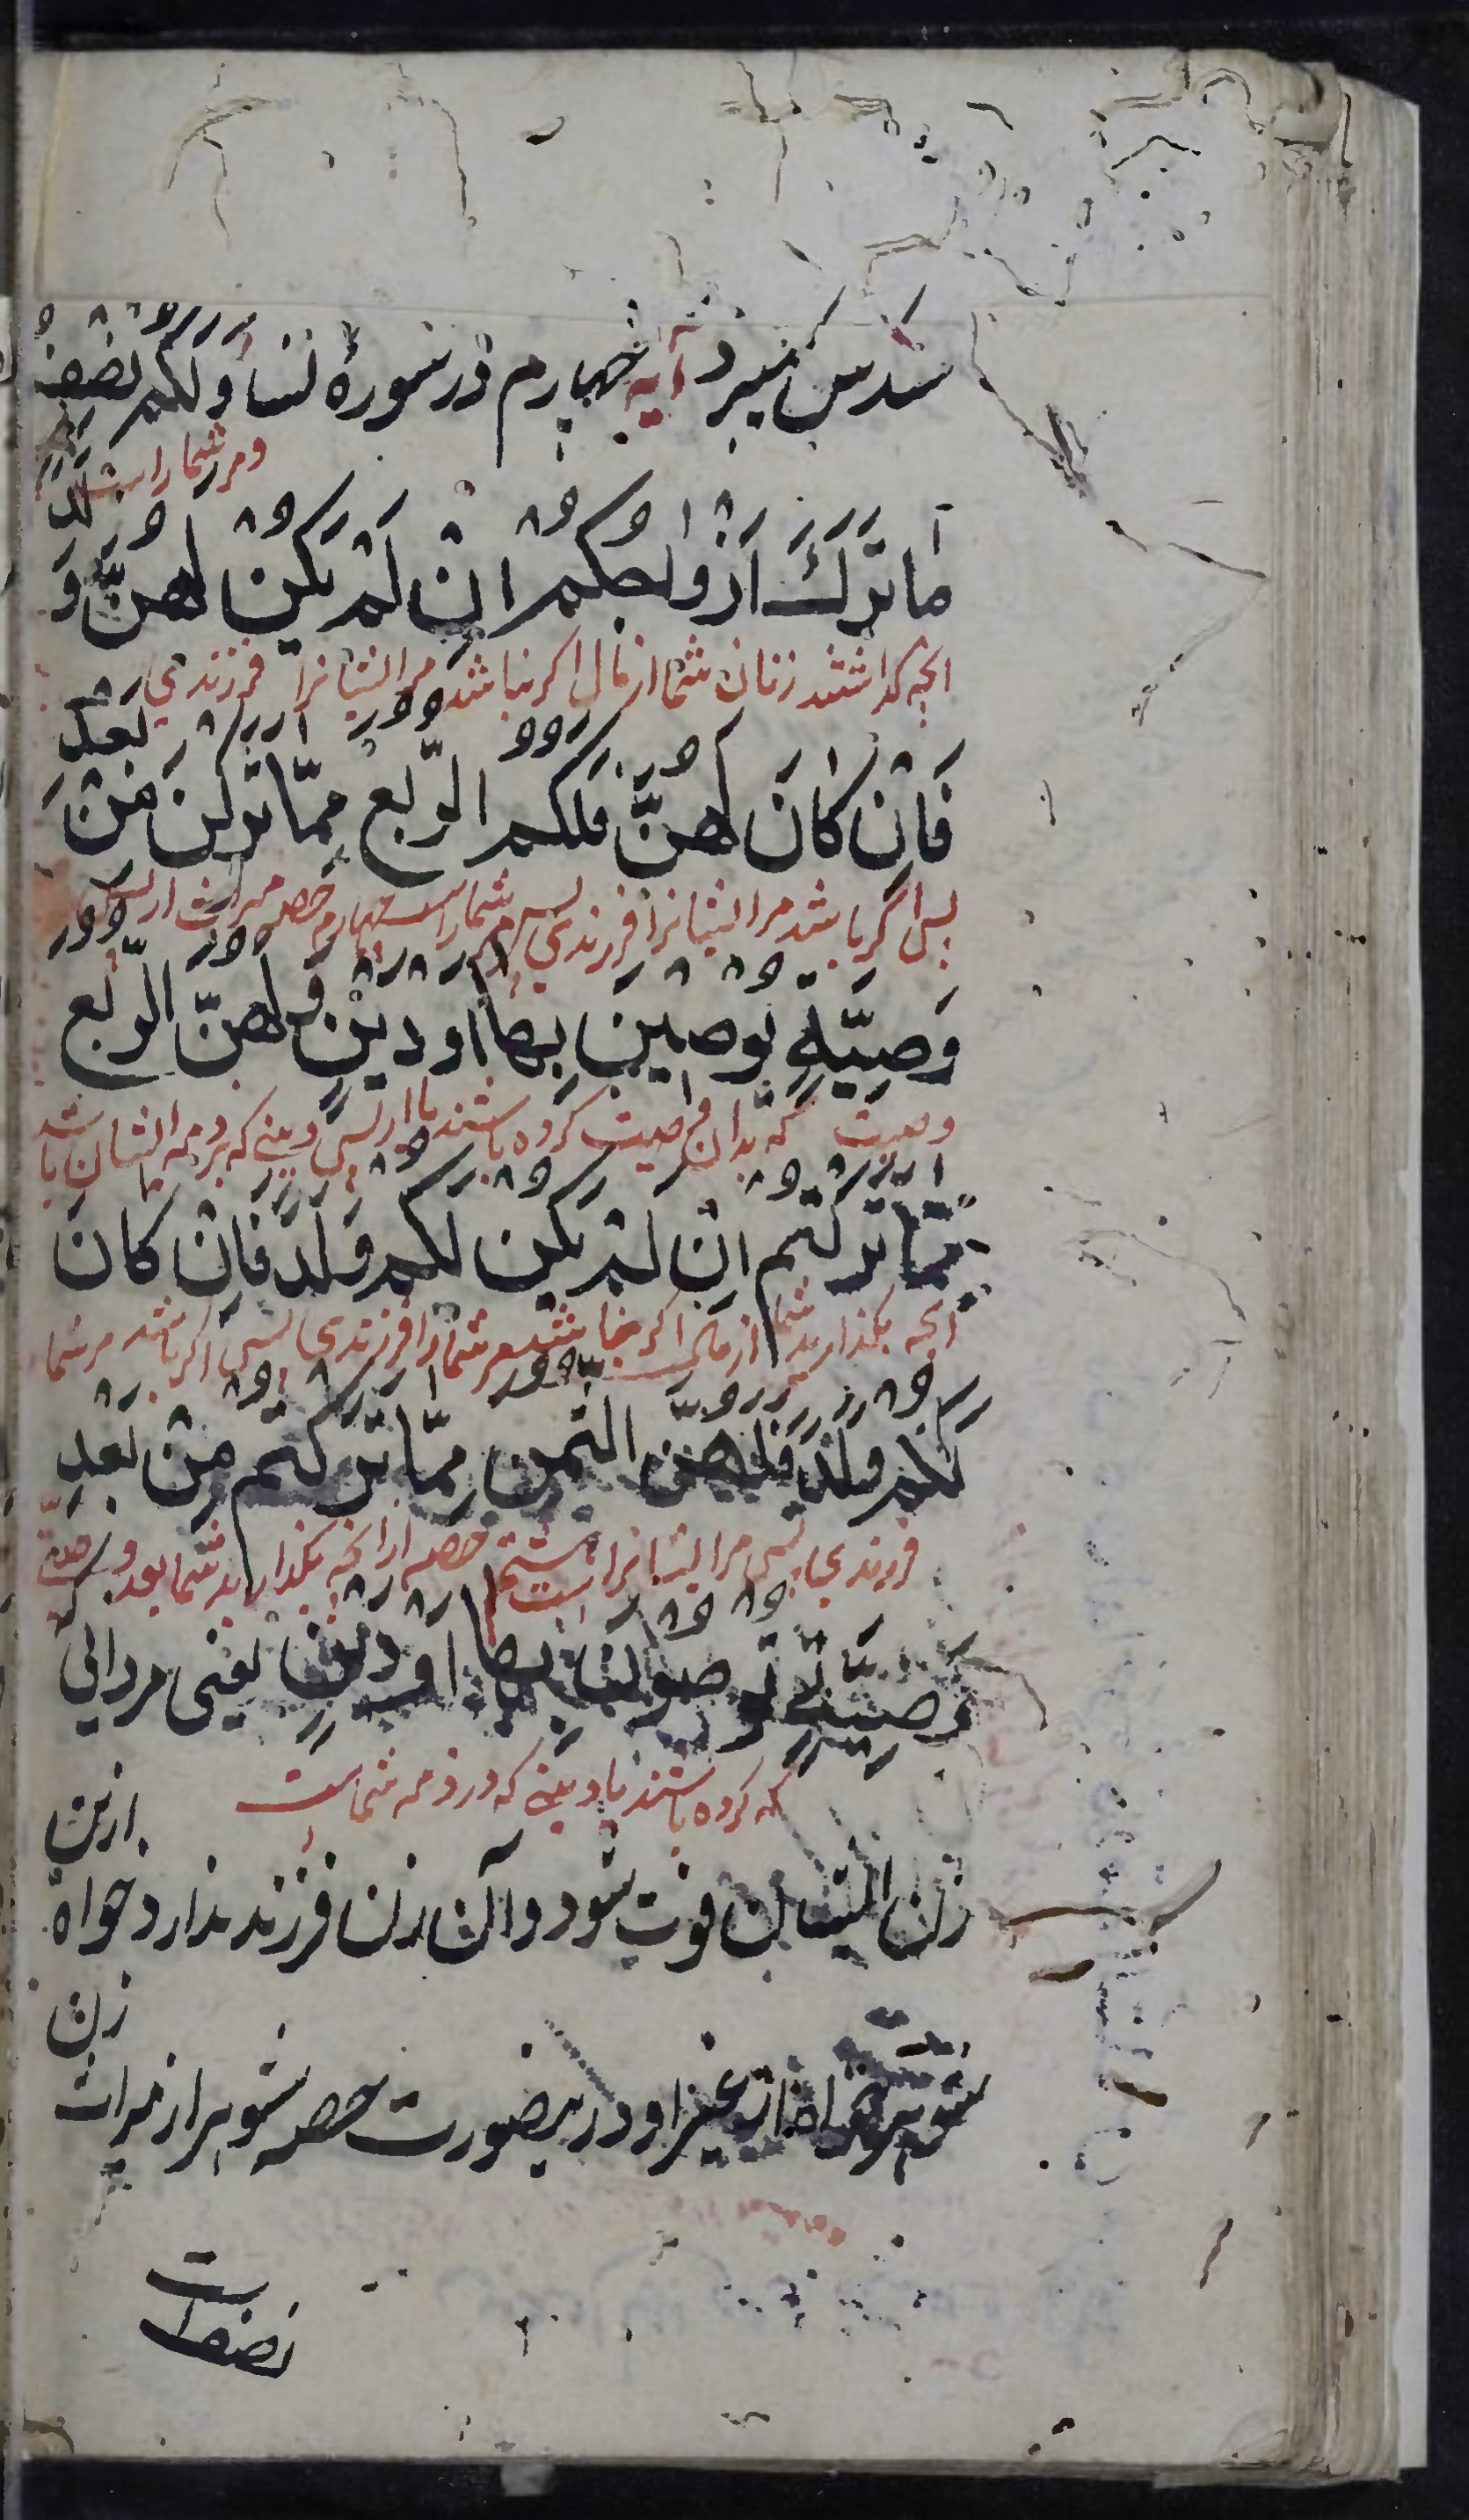 سُدس میبرد آیه چهارم در سورهٔ نسا وَلَكُمْ نِصْفُ
ومر شما راست
مَا تَرَكَ اَزْوَاجُكُمْ اِنْ لَمْ يَكُنْ لَهُنَّ وَلَدٌ
انچه گذاشتند زنان شما از مال اکر نباشد مر ایشانرا فرزندی
فَاِنْ كَانَ لَهُنَّ فَلَكُمُ الرُّبُعُ مِمَّا تَرَكْنَ مِنْ بَعْدِ
پس اگر باشد مر ایشانرا فرزندی پس مر شما راست چهارم حصه میراث از پس
وَصِيَّةٍ يُوصِينَ بِهَا اَوْ دَيْنٍ وَلَهُنَّ الرُّبُعُ
وصیت که بدان وصیت کرده باشند یا از پس دینی که بر ذمه ایشان باشد
مِمَّا تَرَكْتُمْ اِنْ لَمْ يَكُنْ لَكُمْ وَلَدٌ فَاِنْ كَانَ
انچه بگذارید شما از مال اکر نباشد مر شما را فرزندی پس اکر باشد مر شما
لَكُمْ وَلَدٌ فَلَهُنَّ الثُّمُنُ مِمَّا تَرَكْتُمْ مِنْ بَعْدِ
فرزندی پس مر ایشانرا است هشتم حصه از انچه بگذارید شما بعد وصیتی
وَصِيَّةٍ تُوصُونَ بِهَا اَوْ دَيْنٍ یعنی مردانی
که کرده باشند یا دینی که در ذمه شماست
زن ایشان فوت شود و آن زن فرزند ندارد خواه ازین
شوهر خواه از غیر او درینصورت حصه شوهر از میراث زن
نصف است